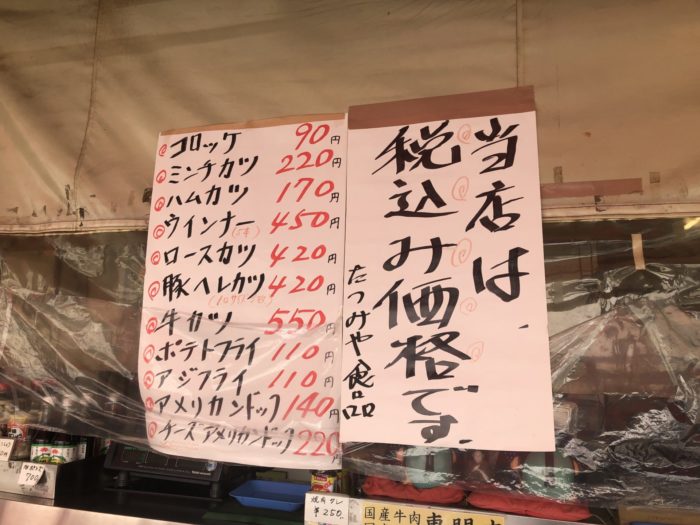 コロッケ 90円
ミンチカツ 220円
ハムカツ 170円
ウインナー(5本) 450円
ロースカツ 420円
豚ヘレカツ 420円
牛カツ 550円
ポテトフライ 110円
アジフライ 110円
アメリカンドック 140円
チーズアメリカンドック 220円
当店は、
税込み価格です。
たつみや食品
焼肉タレ
¥250.
国産牛肉
700